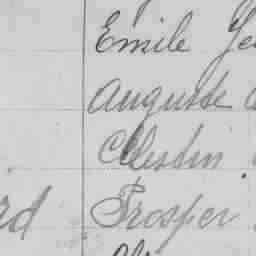 Emile
Auguste
Celestin
rd Prosper